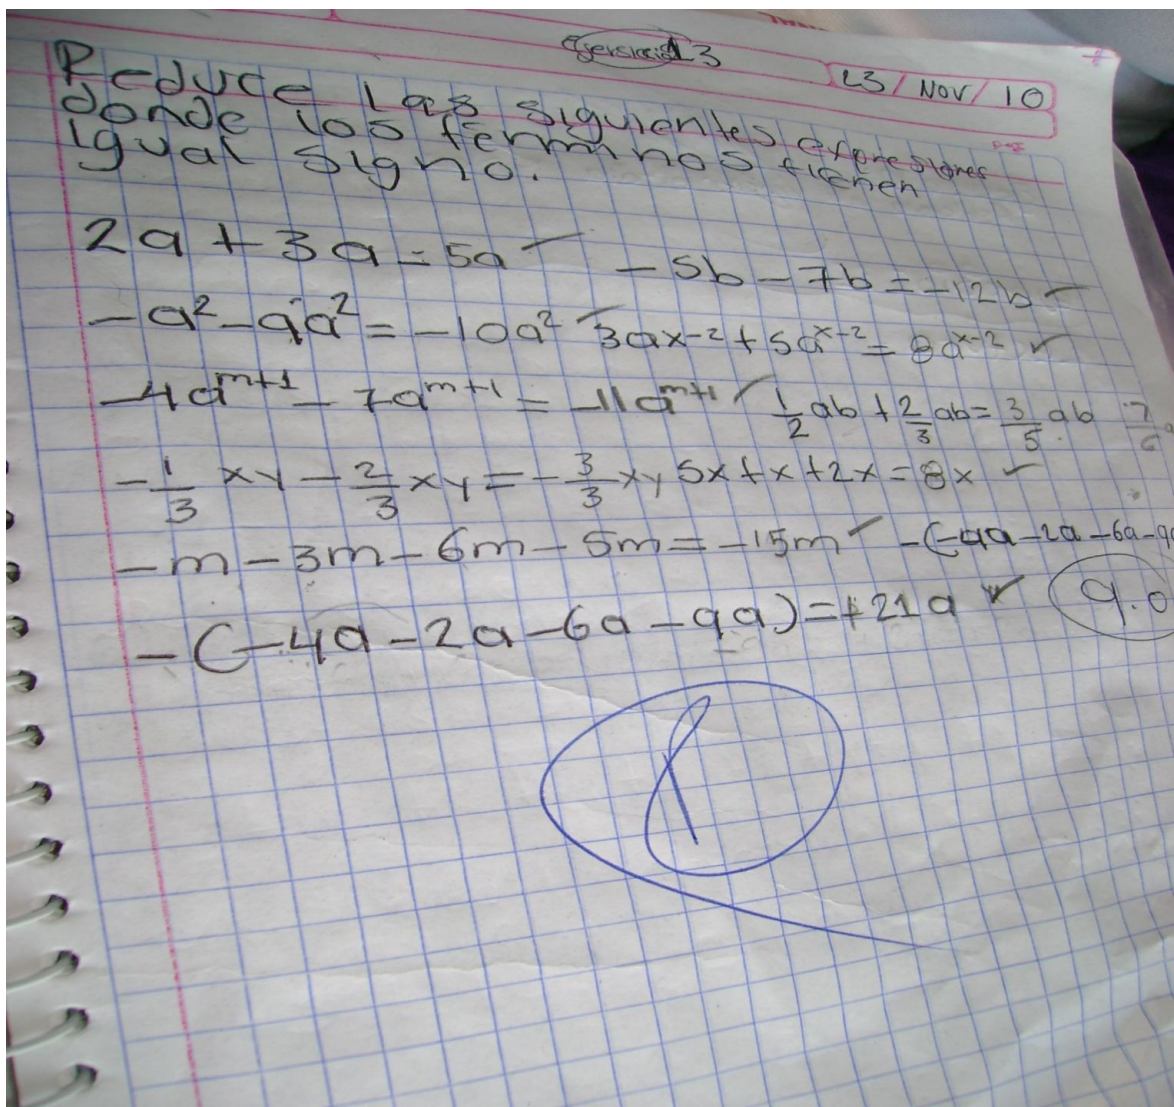 13
23/NOV/10
Reduce las siguientes expresiones
donde los terminos tienen
igual signo.
2a + 3a = 5a   - 5b - 7b = -12b
-a² - 9a² = -10a²   3ax-2 + 5a^x-2 = 8a^x-2
-4a^m+1 - 7a^m+1 = -11a^m+1   1/2 ab + 2/3 ab = 3/5 ab   7/6
-1/3 xy - 2/3 xy = -3/3 xy   5x + x + 2x = 8x
-m - 3m - 6m - 5m = -15m   -(-4a - 2a - 6a - 9a
-(-4a - 2a - 6a - 9a) = +21a   9.0
8